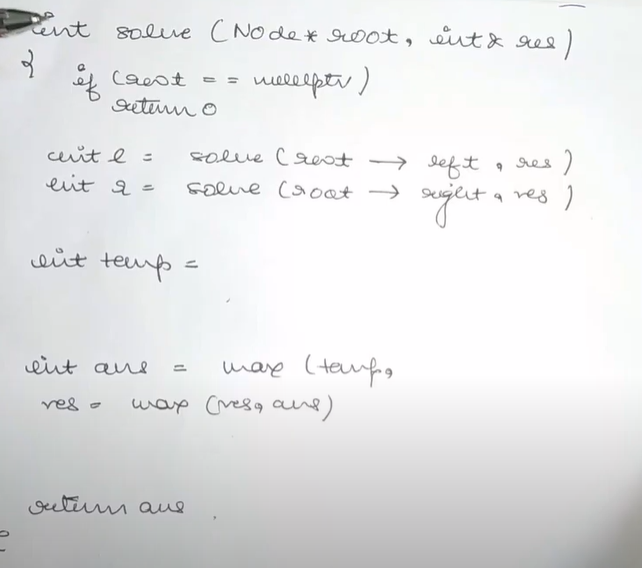 int solve (Node* root, int& res)
{ if (root == nullptr)
return 0
int l = solve (root → left, res)
int r = solve (root → right, res)
int temp =
int ans = max (temp,
res = max (res, ans)
return ans